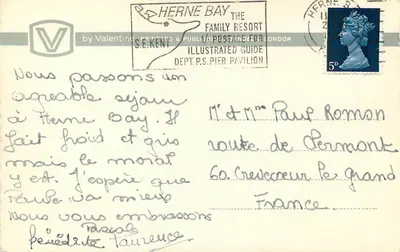 HERNE BAY THE
FAMILY RESORT
S.E. KENT
1/- POSTAGE FOR
ILLUSTRATED GUIDE
DEPT. P.S. PIER PAVILION
HERNE BAY
5D
V
by Valentine
Nous passons un
agreable sejour
à Herne Bay. Il
fait froid et gris
mais le moral
y est. J'espère que
Paule va mieux
Nous vous embrassons
Pascale
Bénédicte Laurence
Mr et Mme Paul Romon
route de Clermont
60. Crevecoeur le Grand
France.